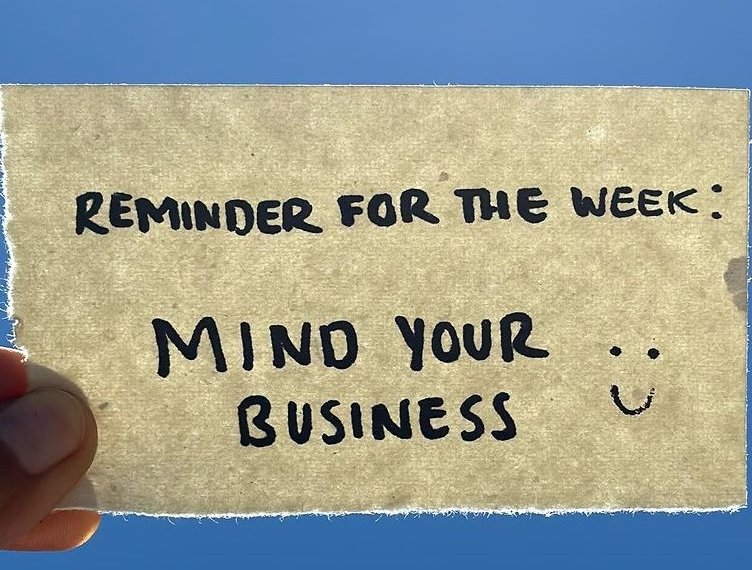 REMINDER FOR THE WEEK:
MIND YOUR
BUSINESS